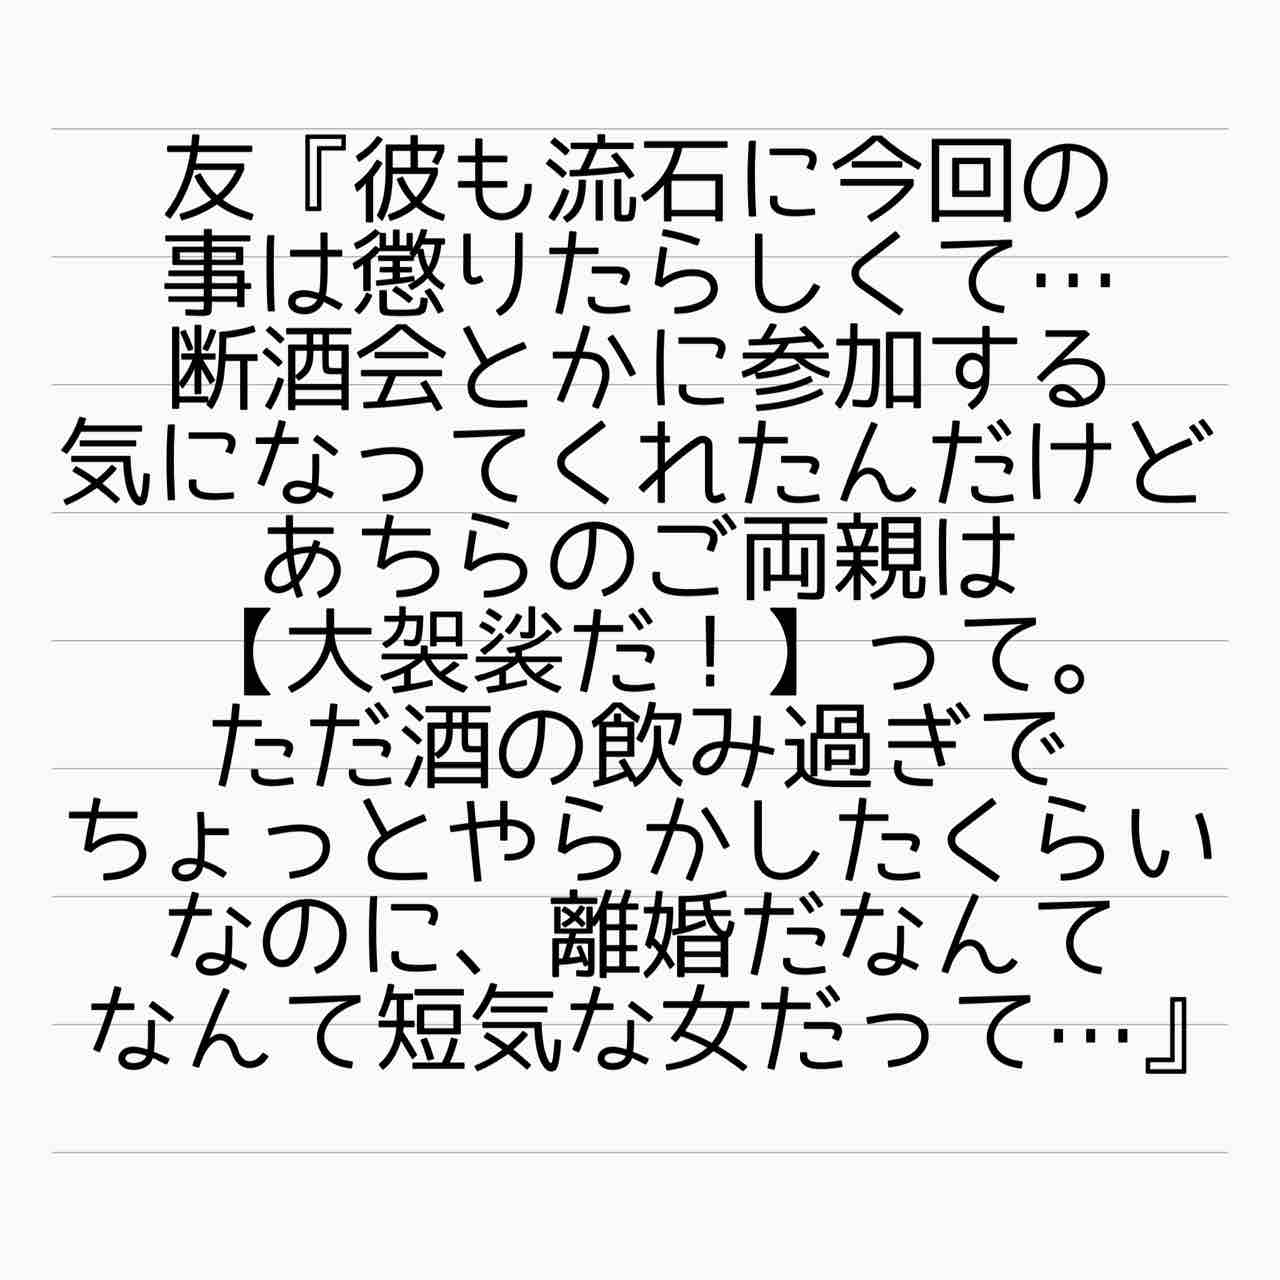 友『彼も流石に今回の
事は懲りたらしくて…
断酒会とかに参加する
気になってくれたんだけど
あちらのご両親は
【大袈裟だ！】って。
ただ酒の飲み過ぎで
ちょっとやらかしたくらい
なのに、離婚だなんて
なんて短気な女だって…』